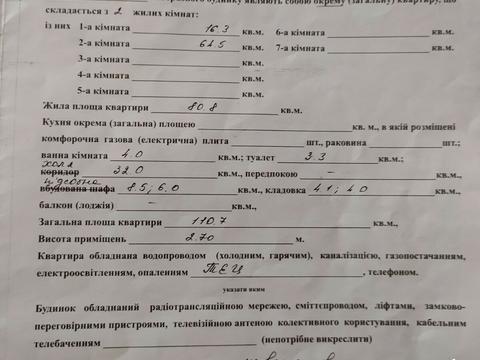 окрему (загальну) квартиру, що
складається з 2 жилих кімнат:
із них 1-а кімната 16.3 кв.м. 6-а кімната кв.м.
2-а кімната 64.5 кв.м. 7-а кімната кв.м.
3-а кімната кв.м.
4-а кімната кв.м.
5-а кімната кв.м.
Жила площа квартири 80.8 кв.м.
Кухня окрема (загальна) площею кв. м., в якій розміщені
комфорочна газова (електрична) плита шт., раковина шт.;
ванна кімната 4.0 кв.м.; туалет 3.3 кв.м.;
хол 2
коридор 32.0 кв.м., передпокою – кв.м.,
підсобна
вбудована шафа 8.5; 6.0 кв.м., кладовка 4.1; 4.0 кв.м.,
балкон (лоджія) – кв.м.,
Загальна площа квартири 110.7 кв.м.,
Висота приміщень 2.70 м.
Квартира обладнана водопроводом (холодним, гарячим), каналізацією, газопостачанням,
електроосвітленням, опаленням ТЕЦ , телефоном.
указати яким
Будинок обладнаний радіотрансляційною мережею, сміттєпроводом, ліфтами, замково-
переговорними пристроями, телевізійною антеною колективного користування, кабельним
телебаченням (непотрібне викреслити)